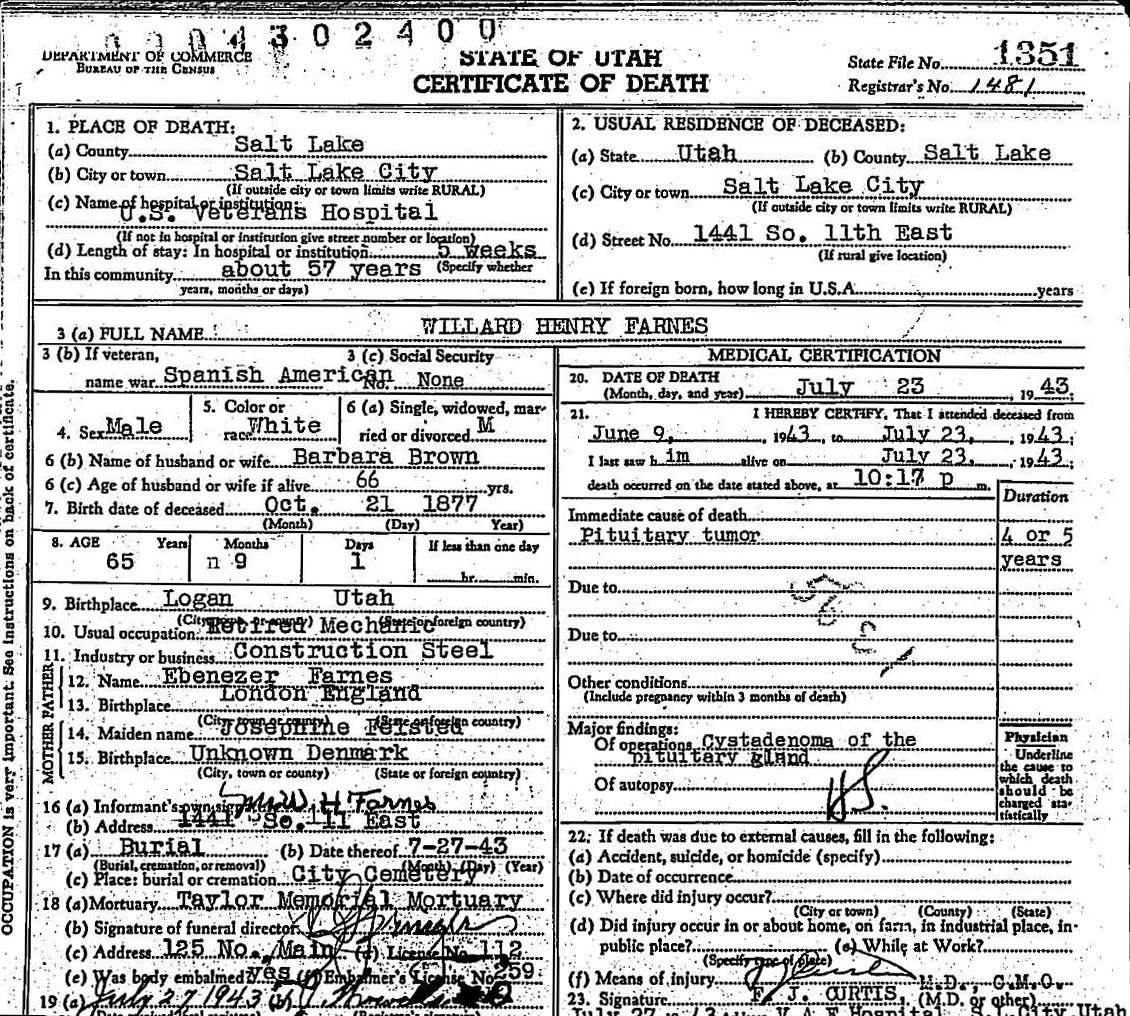 0004302400
DEPARTMENT OF COMMERCE
BUREAU OF THE CENSUS
STATE OF UTAH
CERTIFICATE OF DEATH
State File No. 1351
Registrar's No. 1481
1. PLACE OF DEATH:
(a) County Salt Lake
(b) City or town Salt Lake City
(If outside city or town limits write RURAL)
(c) Name of hospital or institution:
U.S. Veterans Hospital
(If not in hospital or institution give street number or location)
(d) Length of stay: In hospital or institution 5 weeks
In this community about 57 years (Specify whether
years, months or days)
2. USUAL RESIDENCE OF DECEASED:
(a) State Utah (b) County Salt Lake
(c) City or town Salt Lake City
(If outside city or town limits write RURAL)
(d) Street No. 1441 So. 11th East
(If rural give location)
(e) If foreign born, how long in U.S.A. years
3 (a) FULL NAME WILLARD HENRY FARNES
3 (b) If veteran, 3 (c) Social Security
name war Spanish American No. None
4. Sex Male
5. Color or
race White
6 (a) Single, widowed, mar-
ried or divorced M
6 (b) Name of husband or wife Barbara Brown
6 (c) Age of husband or wife if alive 66 yrs.
7. Birth date of deceased Oct. 21 1877
(Month) (Day) Year)
8. AGE Years Months Days If less than one day
65 n 9 1 hr. min.
9. Birthplace Logan Utah
(City, town, or county) (State or foreign country)
10. Usual occupation Retired Mechanic
11. Industry or business Construction Steel
FATHER
12. Name Ebenezer Farnes
13. Birthplace London England
(City, town or county) (State or foreign country)
MOTHER
14. Maiden name Josephine Fersted
15. Birthplace Unknown Denmark
(City, town or county) (State or foreign country)
16 (a) Informant's own signature Mrs W H Farnes
(b) Address 1441 So. 11 East
17 (a) Burial (b) Date thereof 7-27-43
(Burial, cremation, or removal) (Month) (Day) (Year)
(c) Place: burial or cremation City Cemetery
18 (a) Mortuary Taylor Memorial Mortuary
(b) Signature of funeral director
(c) Address 125 No. Main (d) License No. 112
(e) Was body embalmed? yes (f) Embalmer's License No. 259
19 (a) July 27 1943 (b)
MEDICAL CERTIFICATION
20. DATE OF DEATH
(Month, day, and year) July 23, 1943
21. I HEREBY CERTIFY, That I attended deceased from
June 9, 1943, to July 23, 1943;
I last saw him alive on July 23, 1943;
death occurred on the date stated above, at 10:17 p m.
Duration
Immediate cause of death
Pituitary tumor 4 or 5
years
Due to
56
Due to
Other conditions
(Include pregnancy within 3 months of death)
Major findings:
Of operations Cystadenoma of the
pituitary gland
Of autopsy
Physician
Underline
the cause to
which death
should be
charged sta-
tistically
22. If death was due to external causes, fill in the following:
(a) Accident, suicide, or homicide (specify)
(b) Date of occurrence
(c) Where did injury occur?
(City or town) (County) (State)
(d) Did injury occur in or about home, on farm, in industrial place, in-
public place? (e) While at Work?
(Specify type of place)
(f) Means of injury M.D., C.M.O.
23. Signature F. J. CURTIS, (M.D. or other)
July 27 43 V A F Hospital S.L.City Utah
OCCUPATION is very important. See instructions on back of certificate.